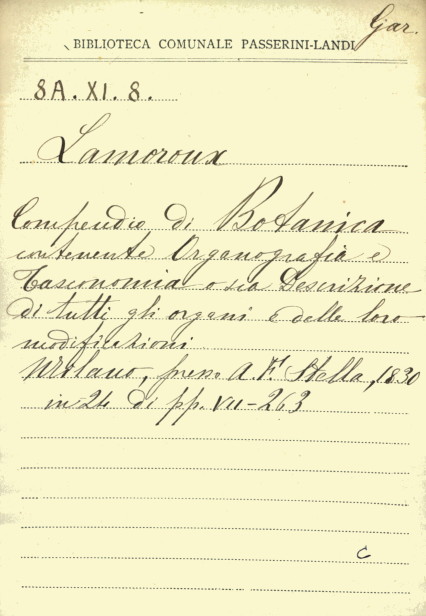 Gar.
BIBLIOTECA COMUNALE PASSERINI-LANDI
8A. XI. 8.
Lamoroux
Compendio di Botanica
contenente Organografia e
Tassonomia o sia Descrizione
di tutti gli organi e delle loro
modificazioni
Milano, presso A. F. Stella, 1830
in 24 di pp. VII-263
C